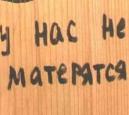 у нас не
матерятся